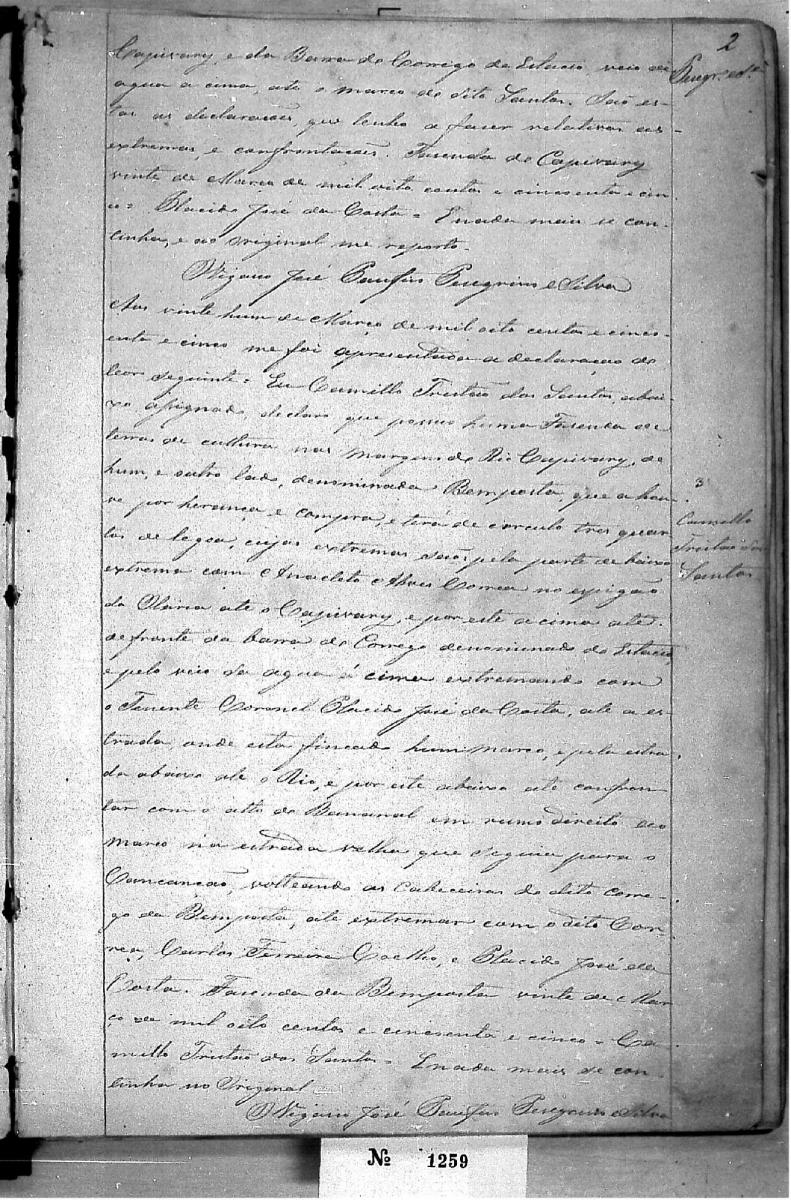 2
Peregr.º eS.ª
Capivary, e da Barra do Corrego do Estacio, veio de
agua a cima, até o marco do dito Santos. São es-
tas as declaraçoes, que tenho a fazer relativas as
extremas, e confrontaçoes. Fasenda do Capivary
vinte de Março de mil oito centos e cincoenta e cin-
co = Placido José da Costa = E nada mais se con-
tinha, e ao original me reporto.
O Vigario José Peregrino e Silva
Aos vinte hum de Março de mil oito centos e cinco-
enta e cinco me foi apresentada a declaração do
teor seguinte = Eu Camillo Tristão dos Santos, abai-
xo assignado, declaro que possuo huma Fasenda de
terras de cultura nas margens do Rio Capivary, de
hum, e outro lado, denominada Bemposta, que a hou-
ve por herança e compra, e terá de circulo tres quar-
tos de legoa, cujas extremas são; pela parte de baixo
extrema com Anacleto Alves Correa no espigão
da Olaria até o Capivary, e por este a cima até
defronte da barra do Corrego denominado do Estacio,
e pelo veio da agua á cima extremando com
o Tenente Coronel Placido José da Costa, até a es-
trada, onde esta fincado hum marco, e pela estra-
da abaixo até o Rio, e por este abaixo até confron-
tar com o alto do Bananal em rumo direito ao
marco na estrada velha que seguia para o
Cancanção, volteando as Cabeceiras do dito corre-
go da Bemposta, até extremar com o dito Cor-
rea, Carlos Ferreira Coelho, e Placido José da
Costa. Fasenda da Bemposta vinte de Mar-
ço de mil oito centos e cincoenta e cinco = Ca-
millo Tristão dos Santos = E nada mais se con-
tinha no Original
O Vigario José Peregrino e Silva
3
Camillo
Tristão dos
Santos
Nº 1259